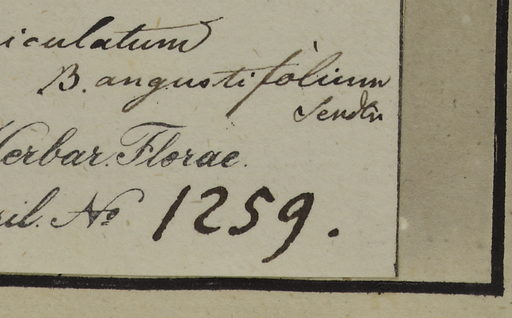 iculatum
B. angustifolium
Sendtn
Herbar. Florae
sil. No 1259.